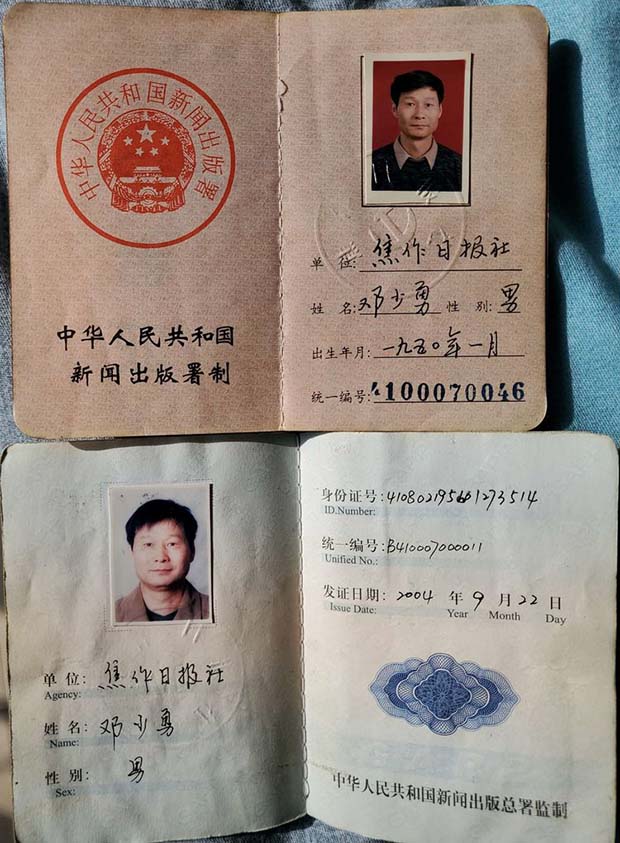 中华人民共和国新闻出版署
中华人民共和国
新闻出版署制
单 位: 焦作日报社
姓 名: 邓少勇 性 别: 男
出生年月: 一九五〇年一月
统一编号: 4100070046
单 位: 焦作日报社
Agency:
姓 名: 邓少勇
Name:
性 别: 男
Sex:
身份证号: 410802195601273514
ID.Number:
统一编号: B410007000011
Unified No.:
发证日期: 2004 年 9 月 22 日
Issue Date: Year Month Day
中华人民共和国新闻出版总署监制